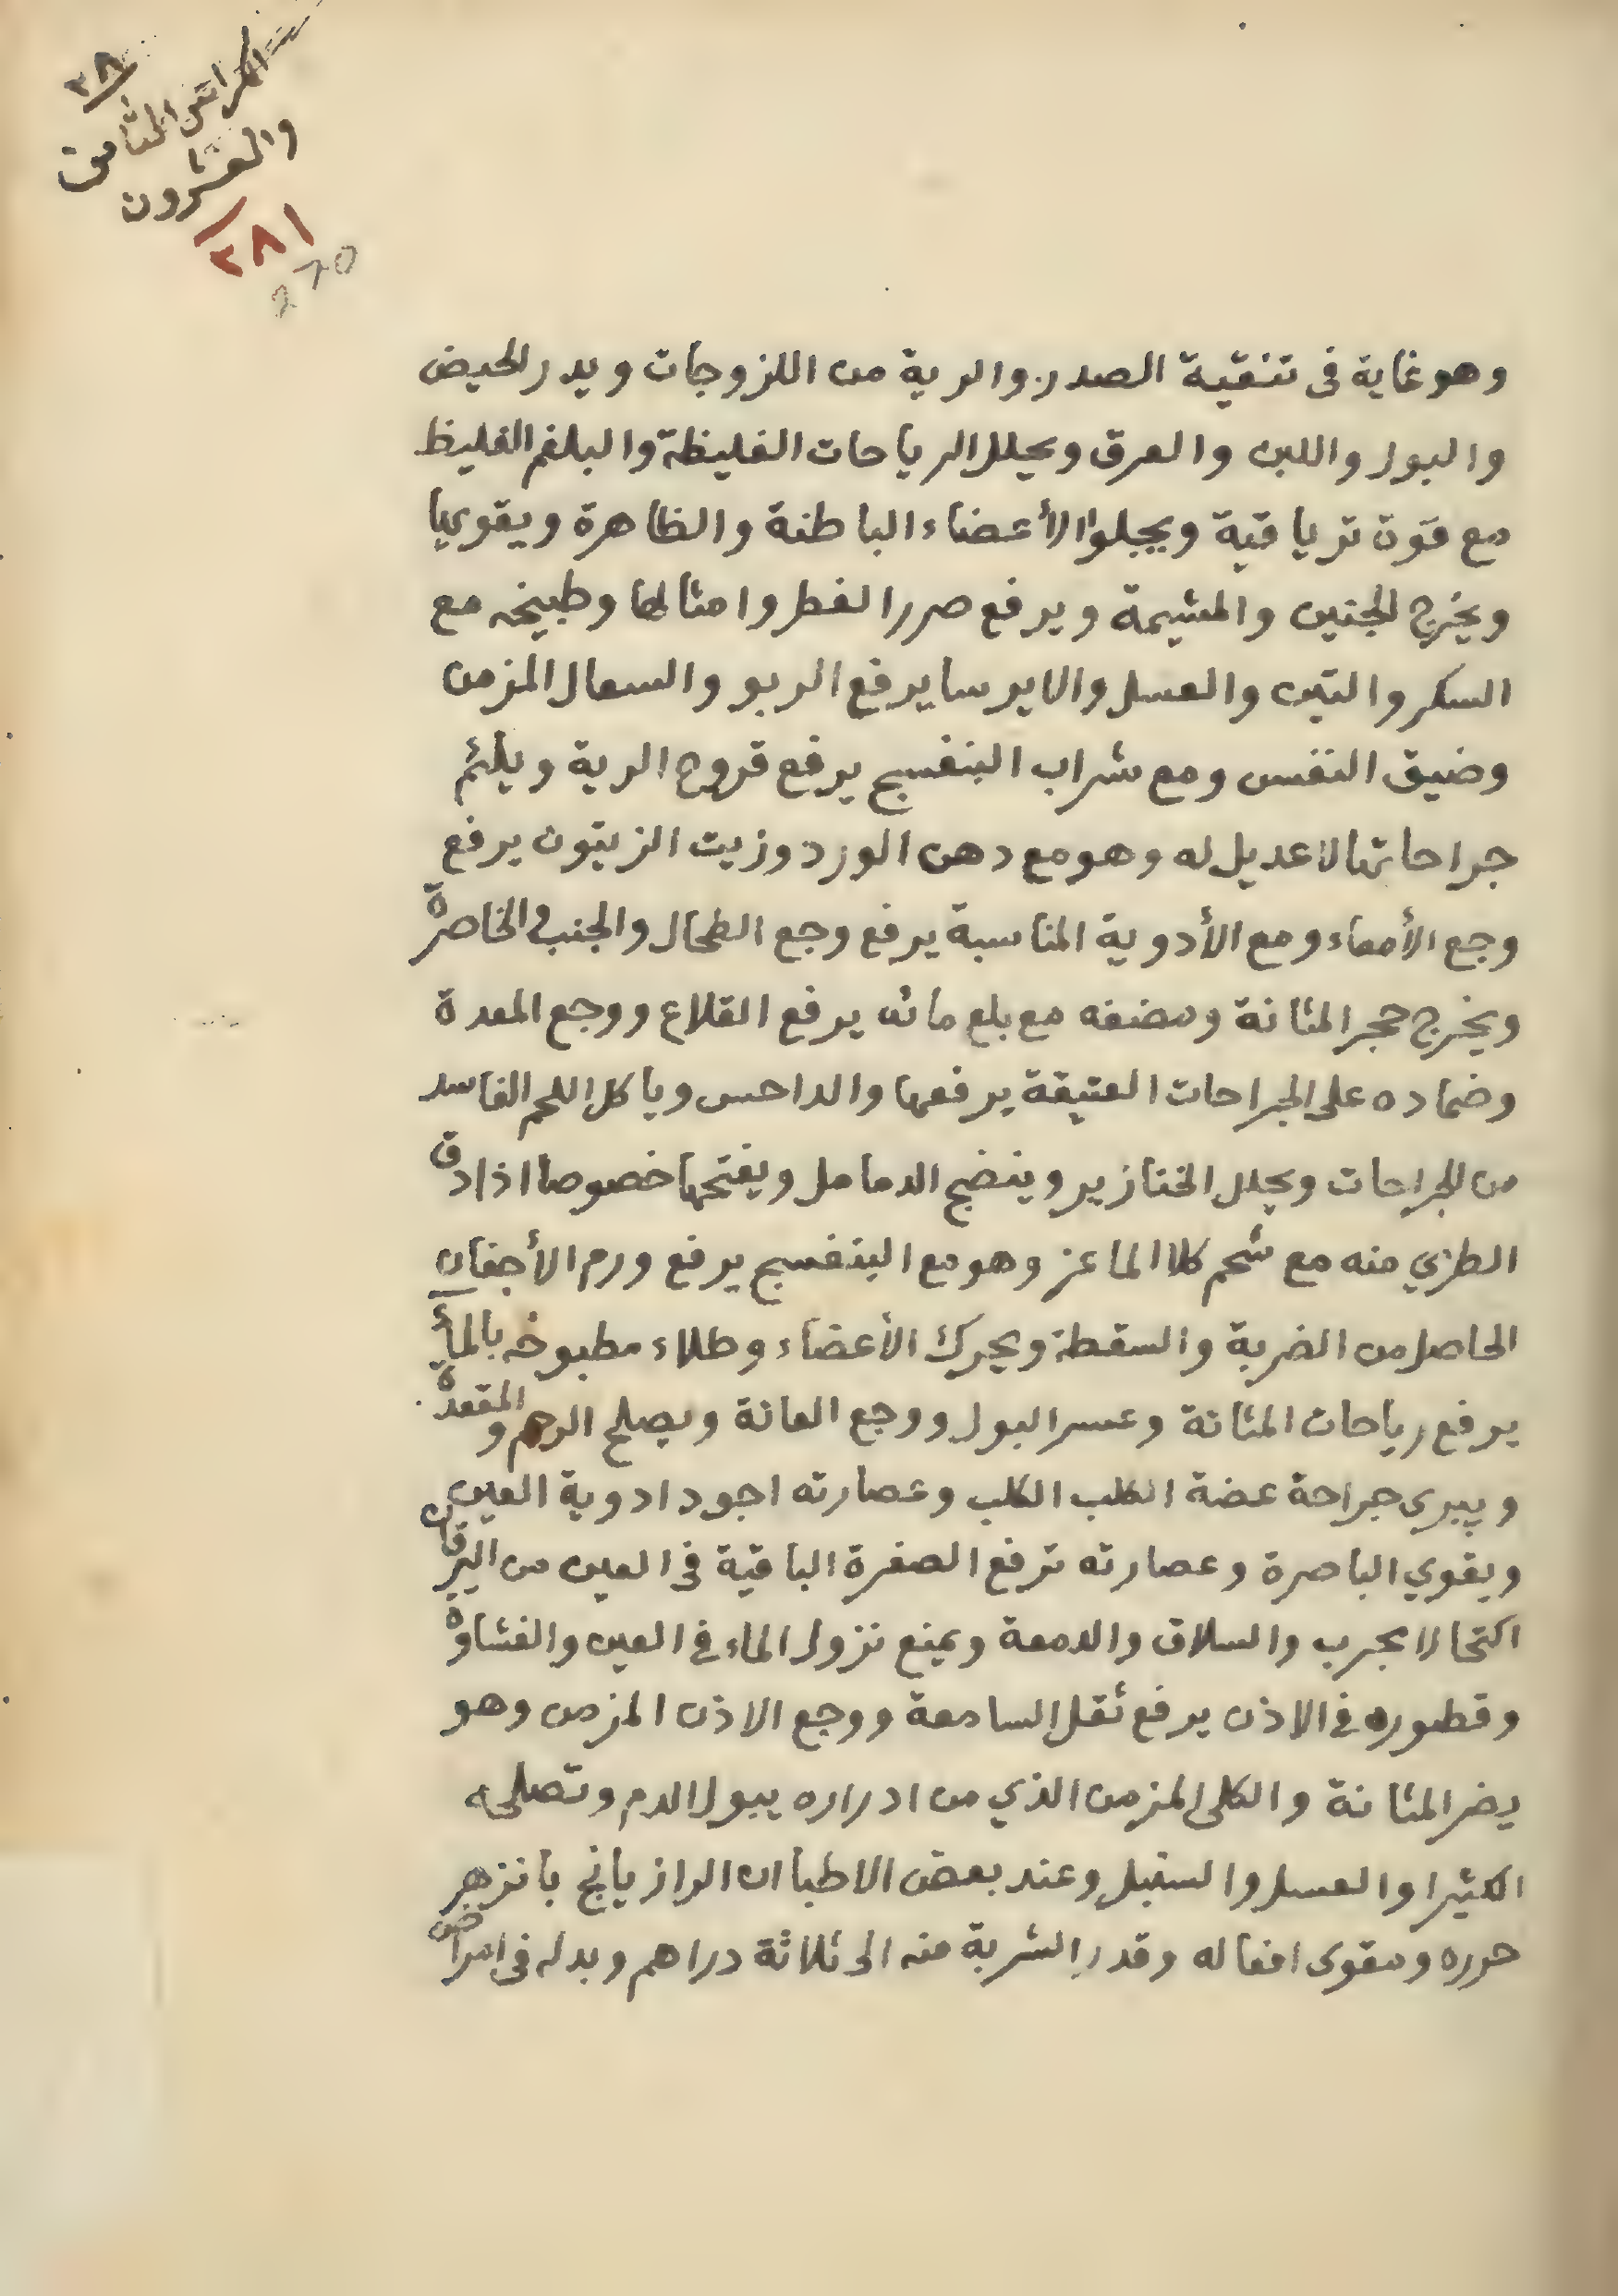 ٢٨
الكراس الثامن
والعشرون
٢٨١
270
وهو غاية فى تنقية الصدر والرية من اللزوجات ويدر الحيض
والبول واللبن والعرق ويحلل الرياحات الغليظة والبلغم الغليظ
مع قوة ترياقية ويجلوا الأعضاء الباطنة والظاهرة ويقويها
ويخرج الجنين والمشيمة ويرفع ضرر الفطر وامثالها وطبيخه مع
السكر والتين والعسل والايرسا يرفع الربو والسعال المزمن
وضيق النفس ومع شراب البنفسج يرفع قروح الرية ويلئم
جراحاتها لا عديل له وهو مع دهن الورد وزيت الزيتون يرفع
وجع الأمعاء ومع الأدوية المناسبة يرفع وجع الطحال والجنب والخاصرة
ويخرج حجر المثانة ومضغه مع بلع مائه يرفع القلاع ووجع المعدة
وضماده على الجراحات العتيقة يرفعها والداحس وياكل اللحم الفاسد
من الجراحات ويحلل الخنازير وينضج الدمامل ويفتحها خصوصا اذا دق
الطري منه مع شحم كلا الماعز وهو مع البنفسج يرفع ورم الأجفان
الحاصل من الضربة والسقطة ويحرك الأعضاء وطلاء مطبوخه بالماء
يرفع رياحات المثانة وعسر البول ووجع العانة ويصلح الرحم والمقعدة
ويبرى جراحة عضة الكلب الكلب وعصارته اجود ادوية العين
ويقوي الباصرة وعصارته ترفع الصفرة الباقية فى العين من اليرقان
اكتحالا مجرب والسلاق والدمعة ويمنع نزول الماء في العين والغشاوة
وقطوره في الاذن يرفع ثقل السامعة ووجع الاذن المزمن وهو
يضر المثانة والكلى المزمن الذي من ادراره يبول الدم وتصلحه
الكثيرا والعسل والسنبل وعند بعض الاطبا ان الرازيانج بانزهر
حوره ومقوى افعاله وقدر الشربة منه الى ثلاثة دراهم وبدله فى امراض